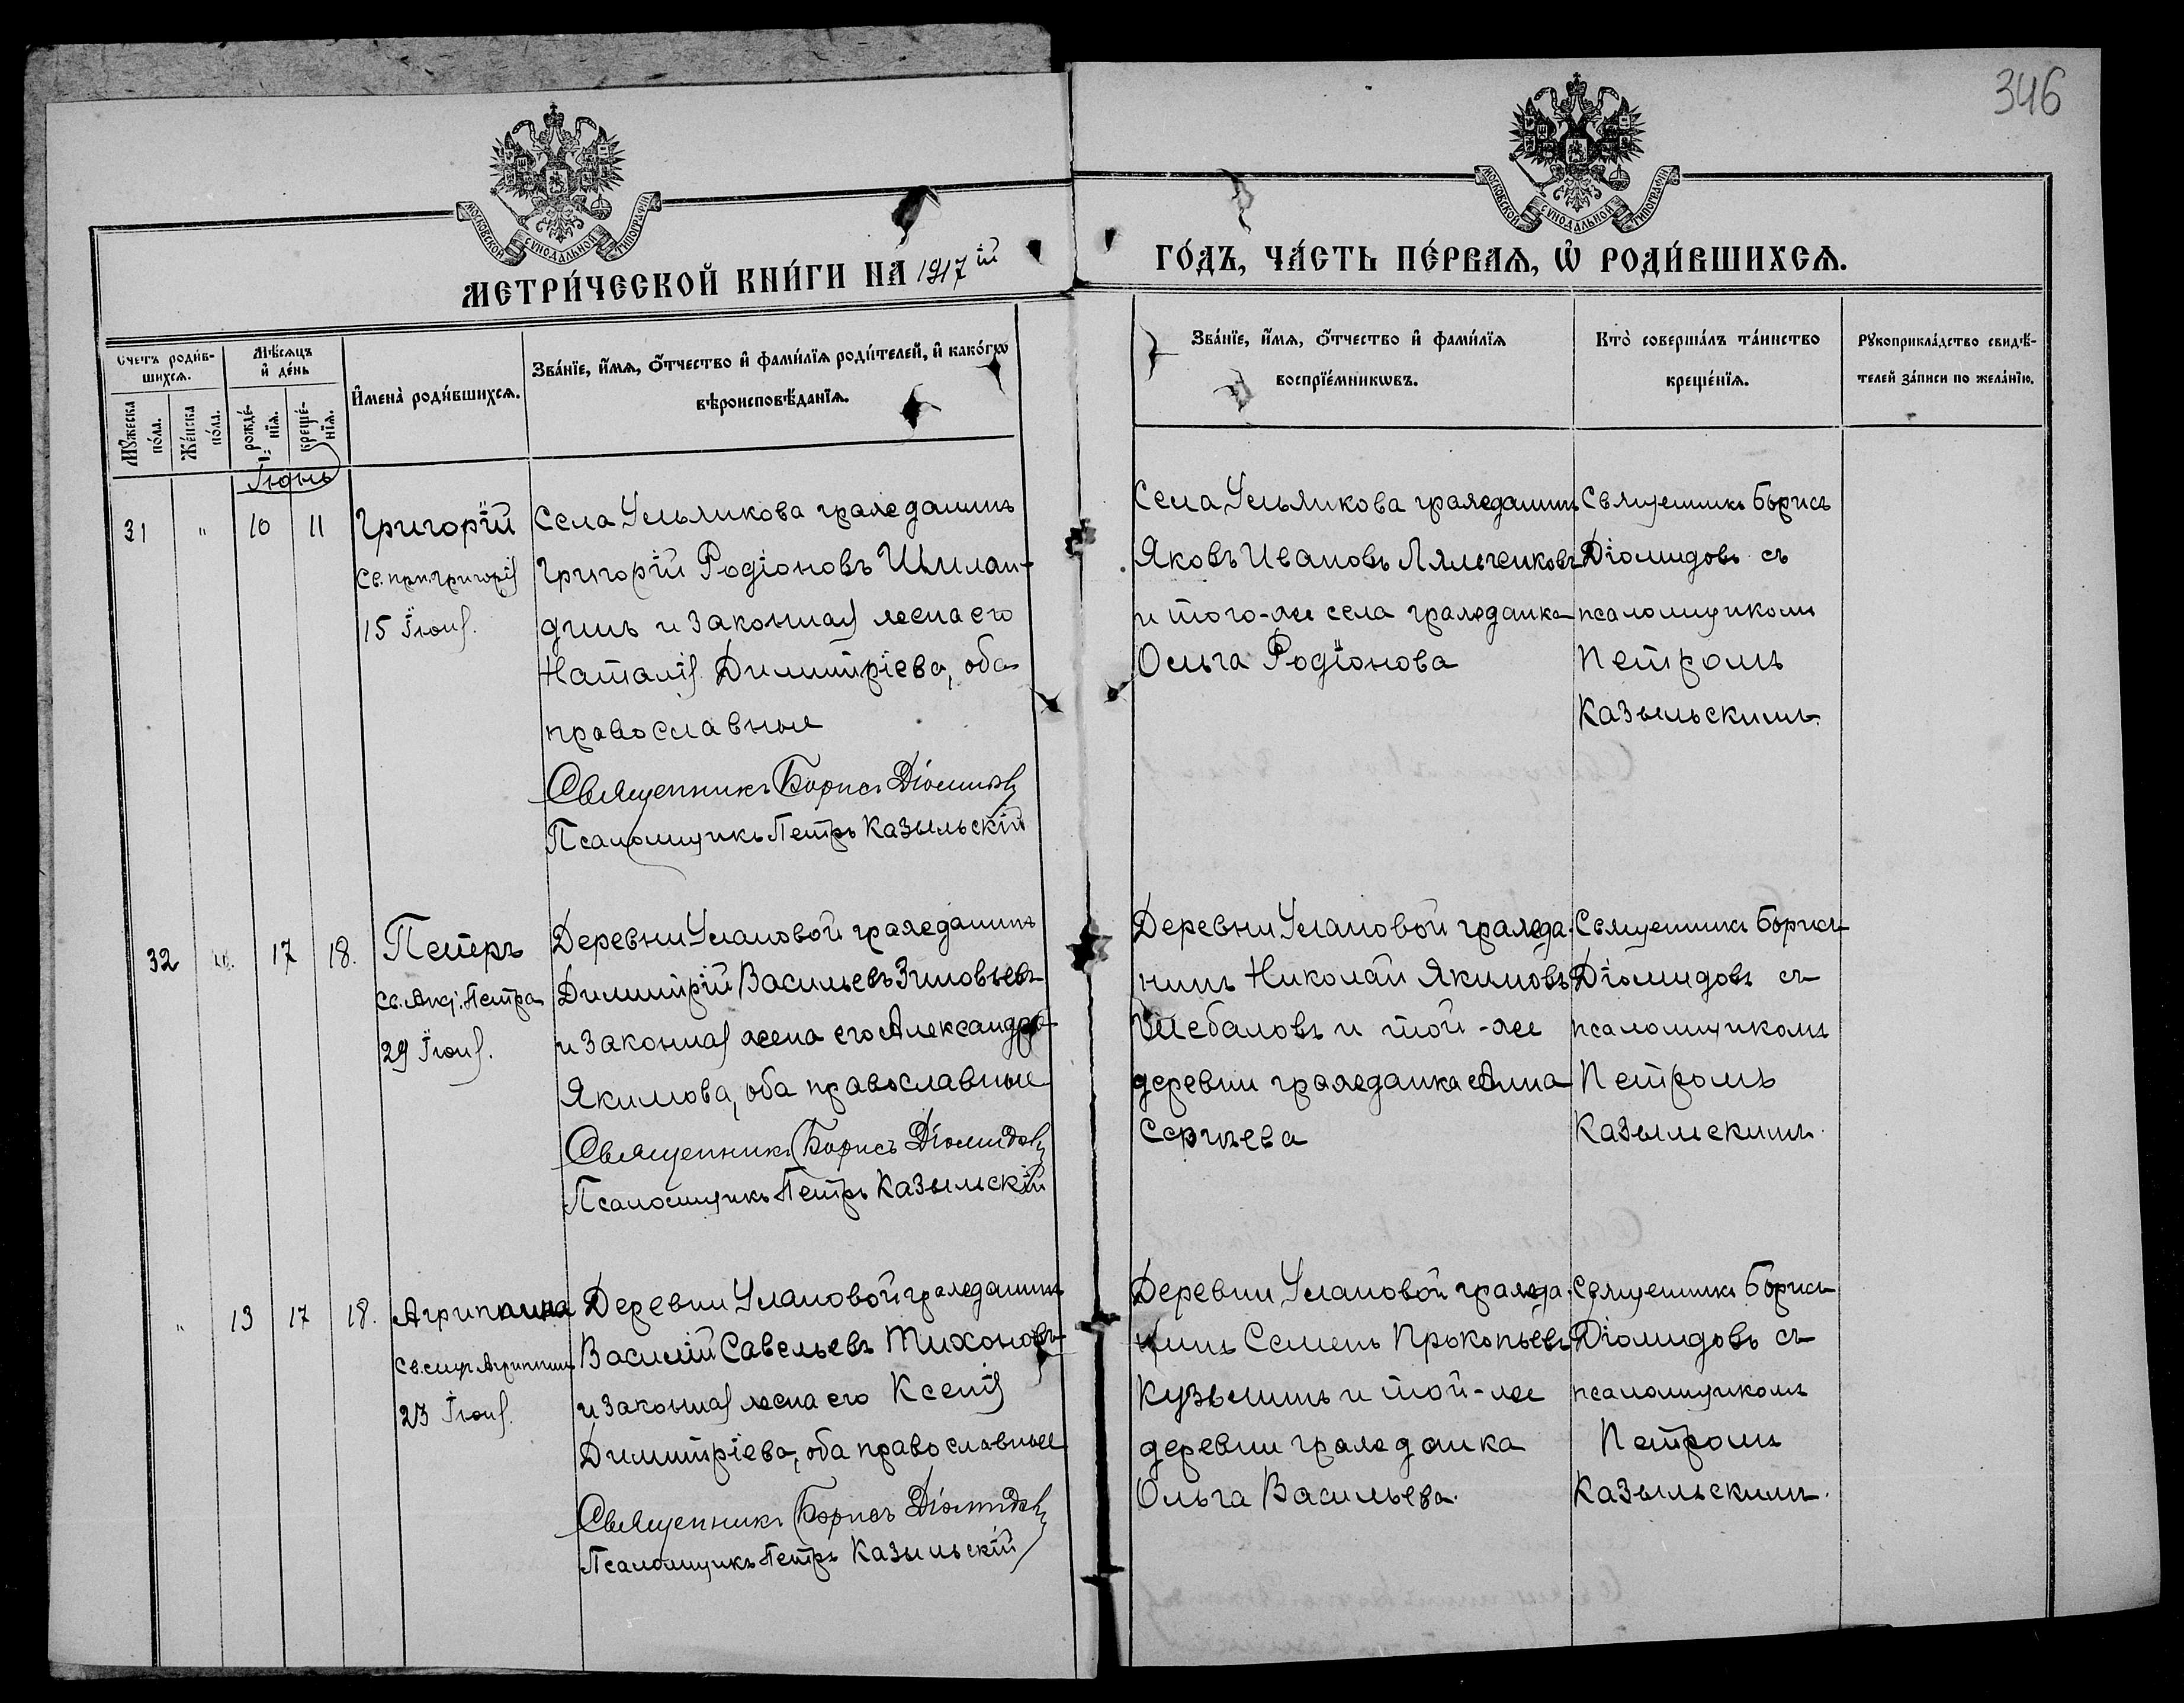 346
МОСКОВСКОЙ СѴНОДАЛЬНОЙ ТИПОГРАФІИ
МОСКОВСКОЙ СѴНОДАЛЬНОЙ ТИПОГРАФІИ
МЕТРИ́ЧЕСКОЙ КНИ́ГИ НА 1917 ій
ГО́ДЪ, ЧА́СТЬ ПЕ́РВАѦ, Ѡ҆ РОДИ́ВШИХСѦ.
Счетъ роди́в-
шихсѧ.
Мꙋжеска по́ла.
Же́нска по́ла.
Мѣ́сѧцъ и҆ де́нь
рожде́-нїѧ.
креще́-нїѧ.
И҆мена̀ роди́вшихсѧ.
Зва́нїе, и҆́мѧ, ѻ҆́тчество и҆ фами́лїѧ роди́телей, и҆ како́гѡ
вѣроисповѣ́данїѧ.
Зва́нїе, и҆́мѧ, ѻ҆́тчество и҆ фами́лїѧ
воспрїе́мникѡвъ.
Кто̀ соверша́лъ та́инство
креще́нїѧ.
Рꙋкоприкла́дство свидѣ́-
телей за́писи по жела́нїю.
Іюнь
31 " 10 11
Григорій
Св. при. Григорія
15 Іюня.
Села Усьликова гражданинъ
Григорій Родіоновъ Шилан-
динъ и законная жена его
Наталія Димитріева, оба
православные
Священникъ Борисъ Діомидовъ
Псаломщикъ Петръ Казыльскій
Села Усьликова гражданинъ
Яковъ Ивановъ Ляльченковъ
и того-же села гражданка
Ольга Родіонова
Священникъ Борисъ
Діомидовъ съ
псаломщикомъ
Петромъ
Казыльскимъ.
32 17 18.
Петръ
Св. Ап. Петра
29 Іюня.
Деревни Улановой гражданинъ
Димитрій Васильевъ Зиновьевъ
и законная жена его Александра
Якимова, оба православные
Священникъ Борисъ Діомидовъ
Псаломщикъ Петръ Казыльскій
Деревни Улановой гражда-
нинъ Николай Якимовъ
Шебаловъ и той-же
деревни гражданка Анна
Сергѣева
Священникъ Борисъ
Діомидовъ съ
псаломщикомъ
Петромъ
Казыльскимъ.
" 13 17 18.
Агриппина
Св. муч. Агриппины
23 Іюня.
Деревни Улановой гражданинъ
Василій Савельевъ Тихоновъ
и законная жена его Ксенія
Димитріева, оба православные
Священникъ Борисъ Діомидовъ
Псаломщикъ Петръ Казыльскій
Деревни Улановой гражда-
нинъ Семенъ Прокопьевъ
Кузьминъ и той-же
деревни гражданка
Ольга Васильева.
Священникъ Борисъ
Діомидовъ съ
псаломщикомъ
Петромъ
Казыльскимъ.